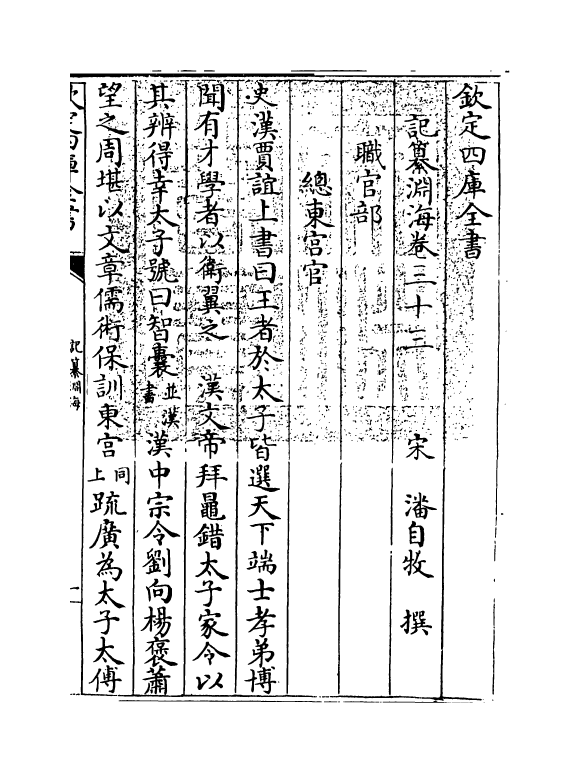 欽定四庫全書
記纂淵海卷三十三 宋 潘自牧 撰
職官部
總東宮官
史漢賈誼上書曰王者於太子皆選天下端士孝弟博
聞有才學者以衛翼之 漢文帝拜鼂錯太子家令以
其辨得幸太子號曰智囊並漢書 漢中宗令劉向楊褒蕭
望之周堪以文章儒術保訓東宮同上 疏廣為太子太傅
欽定四庫全書
記纂淵海
一